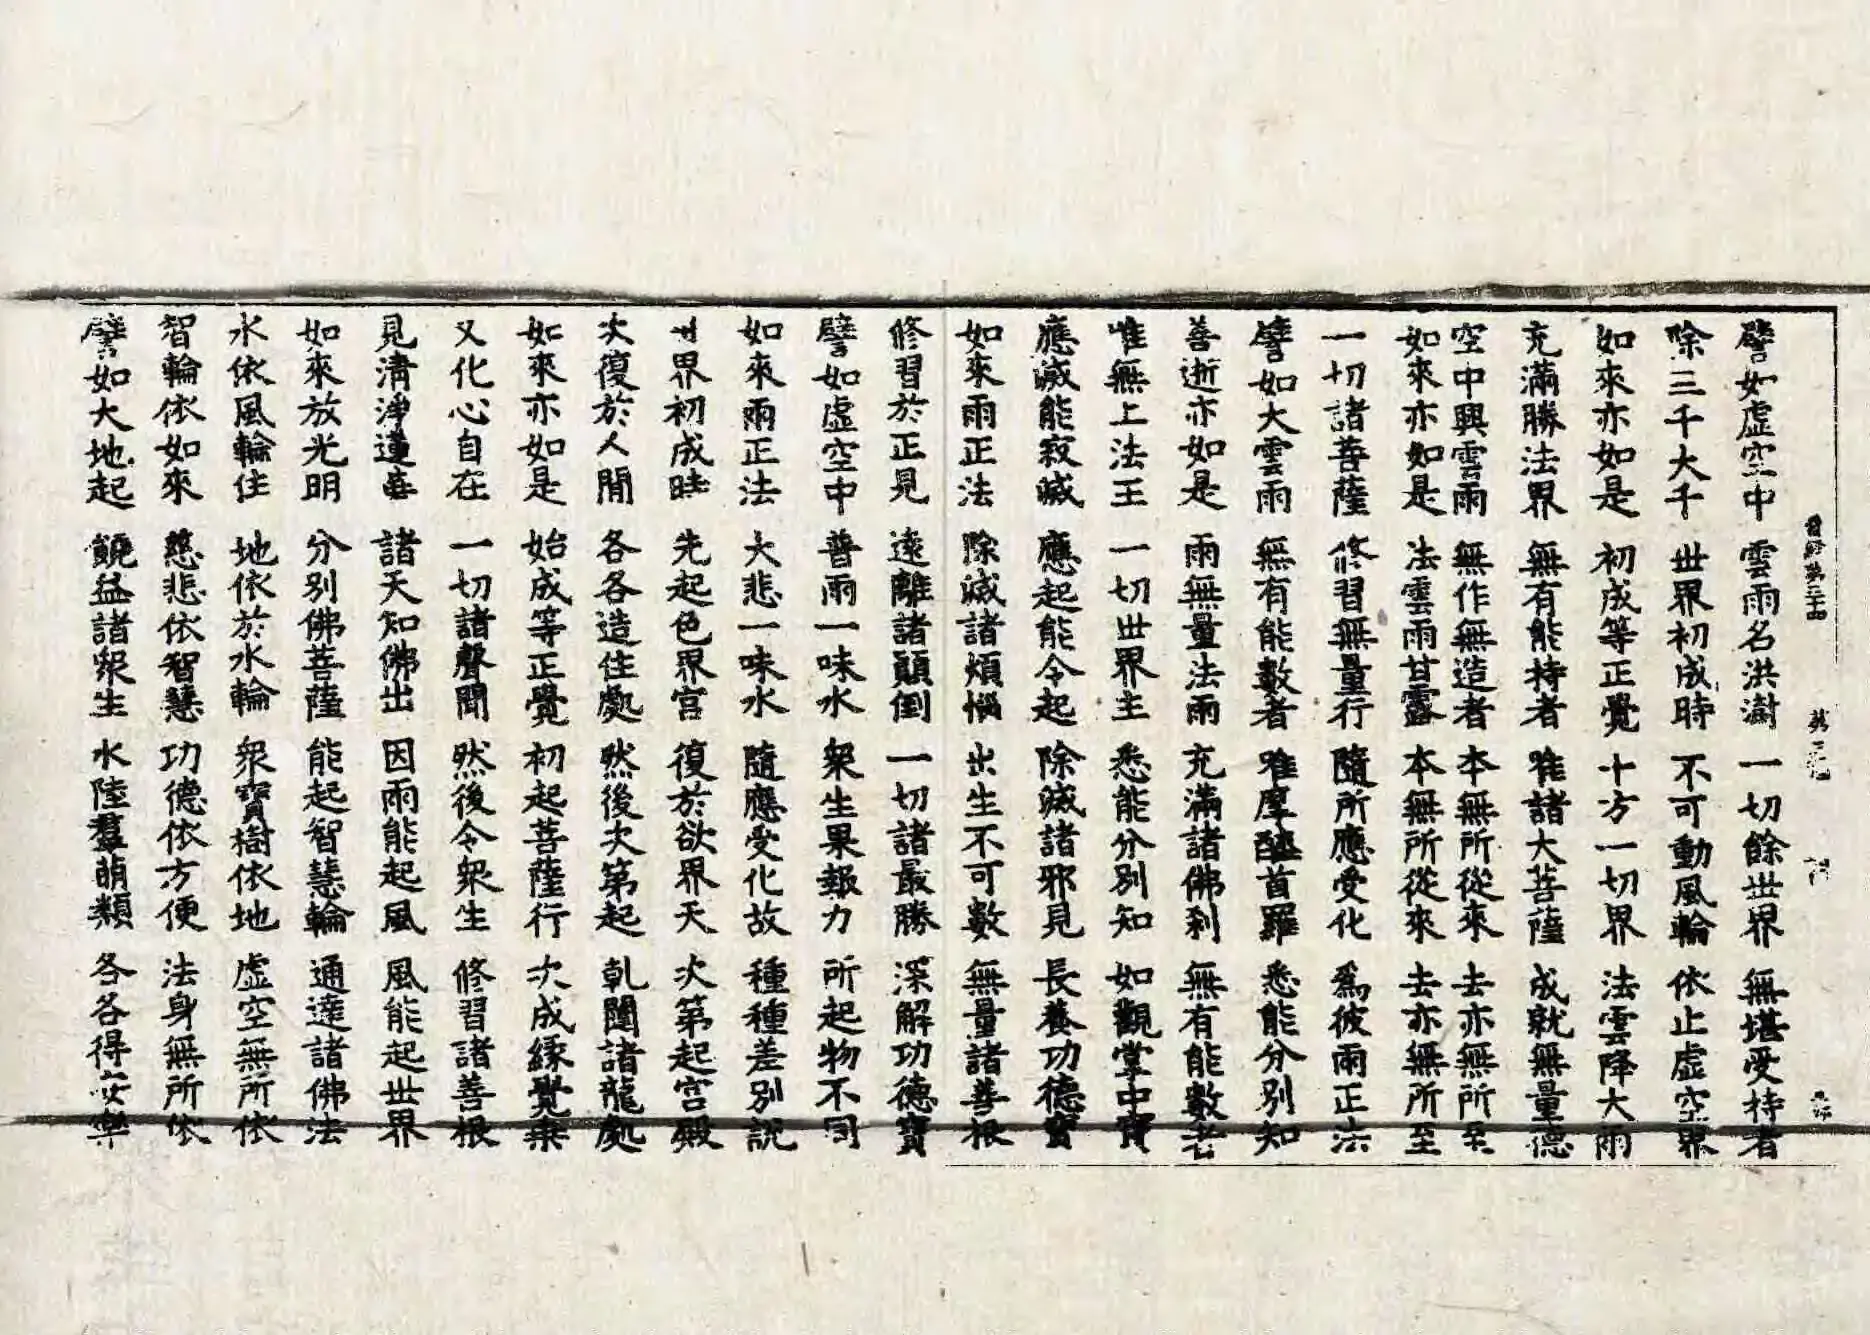 譬如虛空中 雲雨名洪澍 一切餘世界 無堪受持者
除三千大千 世界初成時 不可動風輪 依止虛空界
如來亦如是 初成等正覺 十方一切界 法雲降大雨
充滿勝法界 無有能持者 唯諸大菩薩 成就無量德
空中興雲雨 無作無造者 本無所從來 去亦無所至
如來亦如是 法雲雨甘露 本無所從來 去亦無所至
一切諸菩薩 修習無量行 隨所應受化 爲彼雨正法
譬如大雲雨 無有能數者 唯摩醯首羅 悉能分別知
善逝亦如是 雨無量法雨 充滿諸佛刹 無有能數者
唯無上法王 一切世界主 悉能分別知 如觀掌中寶
應滅能寂滅 應起能令起 除滅諸邪見 長養功德寶
如來雨正法 除滅諸煩惱 出生不可數 無量諸善根
修習於正見 遠離諸顚倒 一切諸最勝 深解功德寶
譬如虛空中 普雨一味水 衆生果報力 所起物不同
如來雨正法 大悲一味水 隨應受化故 種種差別說
世界初成時 先起色界宮 復於欲界天 次第起宮殿
次復於人間 各各造住處 然後次第起 乹闥諸龍處
如來亦如是 始成等正覺 初起菩薩行 次成緣覺乘
又化心自在 一切諸聲聞 然後令衆生 修習諸善根
見淸淨蓮華 諸天知佛出 因雨能起風 風能起世界
如來放光明 分別佛菩薩 能起智慧輪 通達諸佛法
水依風輪住 地依於水輪 衆寶樹依地 虛空無所依
智輪依如來 慈悲依智慧 功德依方便 法身無所依
譬如大地起 饒益諸衆生 水陸羣萌類 各各得安樂